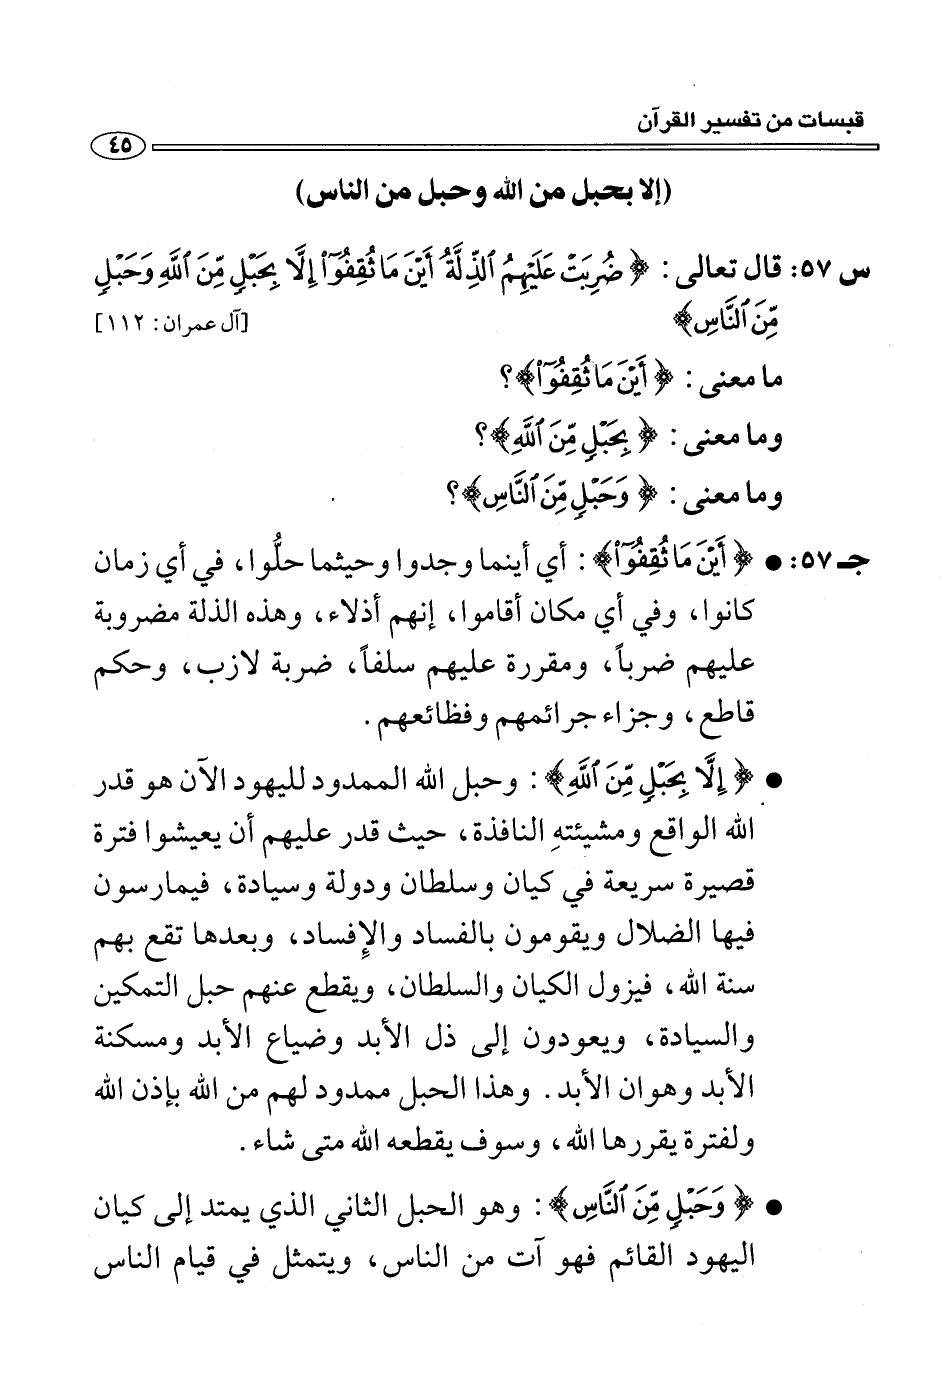 قبسات من تفسير القرآن
٤٥
(إلا بحبل من الله وحبل من الناس)
س ٥٧: قال تعالى: ﴿ ضُرِبَتْ عَلَيْهِمُ ٱلذِّلَّةُ أَيْنَ مَا ثُقِفُوٓا۟ إِلَّا بِحَبْلٍ مِّنَ ٱللَّهِ وَحَبْلٍ
مِّنَ ٱلنَّاسِ﴾ [آل عمران: ١١٢]
ما معنى: ﴿ أَيْنَ مَا ثُقِفُوٓا۟﴾؟
وما معنى: ﴿ بِحَبْلٍ مِّنَ ٱللَّهِ﴾؟
وما معنى: ﴿ وَحَبْلٍ مِّنَ ٱلنَّاسِ﴾؟
جـ ٥٧: ● ﴿ أَيْنَ مَا ثُقِفُوٓا۟﴾: أي أينما وجدوا وحيثما حلُّوا، في أي زمان
كانوا، وفي أي مكان أقاموا، إنهم أذلاء، وهذه الذلة مضروبة
عليهم ضرباً، ومقررة عليهم سلفاً، ضربة لازب، وحكم
قاطع، وجزاء جرائمهم وفظائعهم.
● ﴿ إِلَّا بِحَبْلٍ مِّنَ ٱللَّهِ﴾: وحبل الله الممدود لليهود الآن هو قدر
الله الواقع ومشيئتهِ النافذة، حيث قدر عليهم أن يعيشوا فترة
قصيرة سريعة في كيان وسلطان ودولة وسيادة، فيمارسون
فيها الضلال ويقومون بالفساد والإِفساد، وبعدها تقع بهم
سنة الله، فيزول الكيان والسلطان، ويقطع عنهم حبل التمكين
والسيادة، ويعودون إلى ذل الأبد وضياع الأبد ومسكنة
الأبد وهوان الأبد. وهذا الحبل ممدود لهم من الله بإذن الله
ولفترة يقررها الله، وسوف يقطعه الله متى شاء.
● ﴿ وَحَبْلٍ مِّنَ ٱلنَّاسِ﴾: وهو الحبل الثاني الذي يمتد إلى كيان
اليهود القائم فهو آت من الناس، ويتمثل في قيام الناس